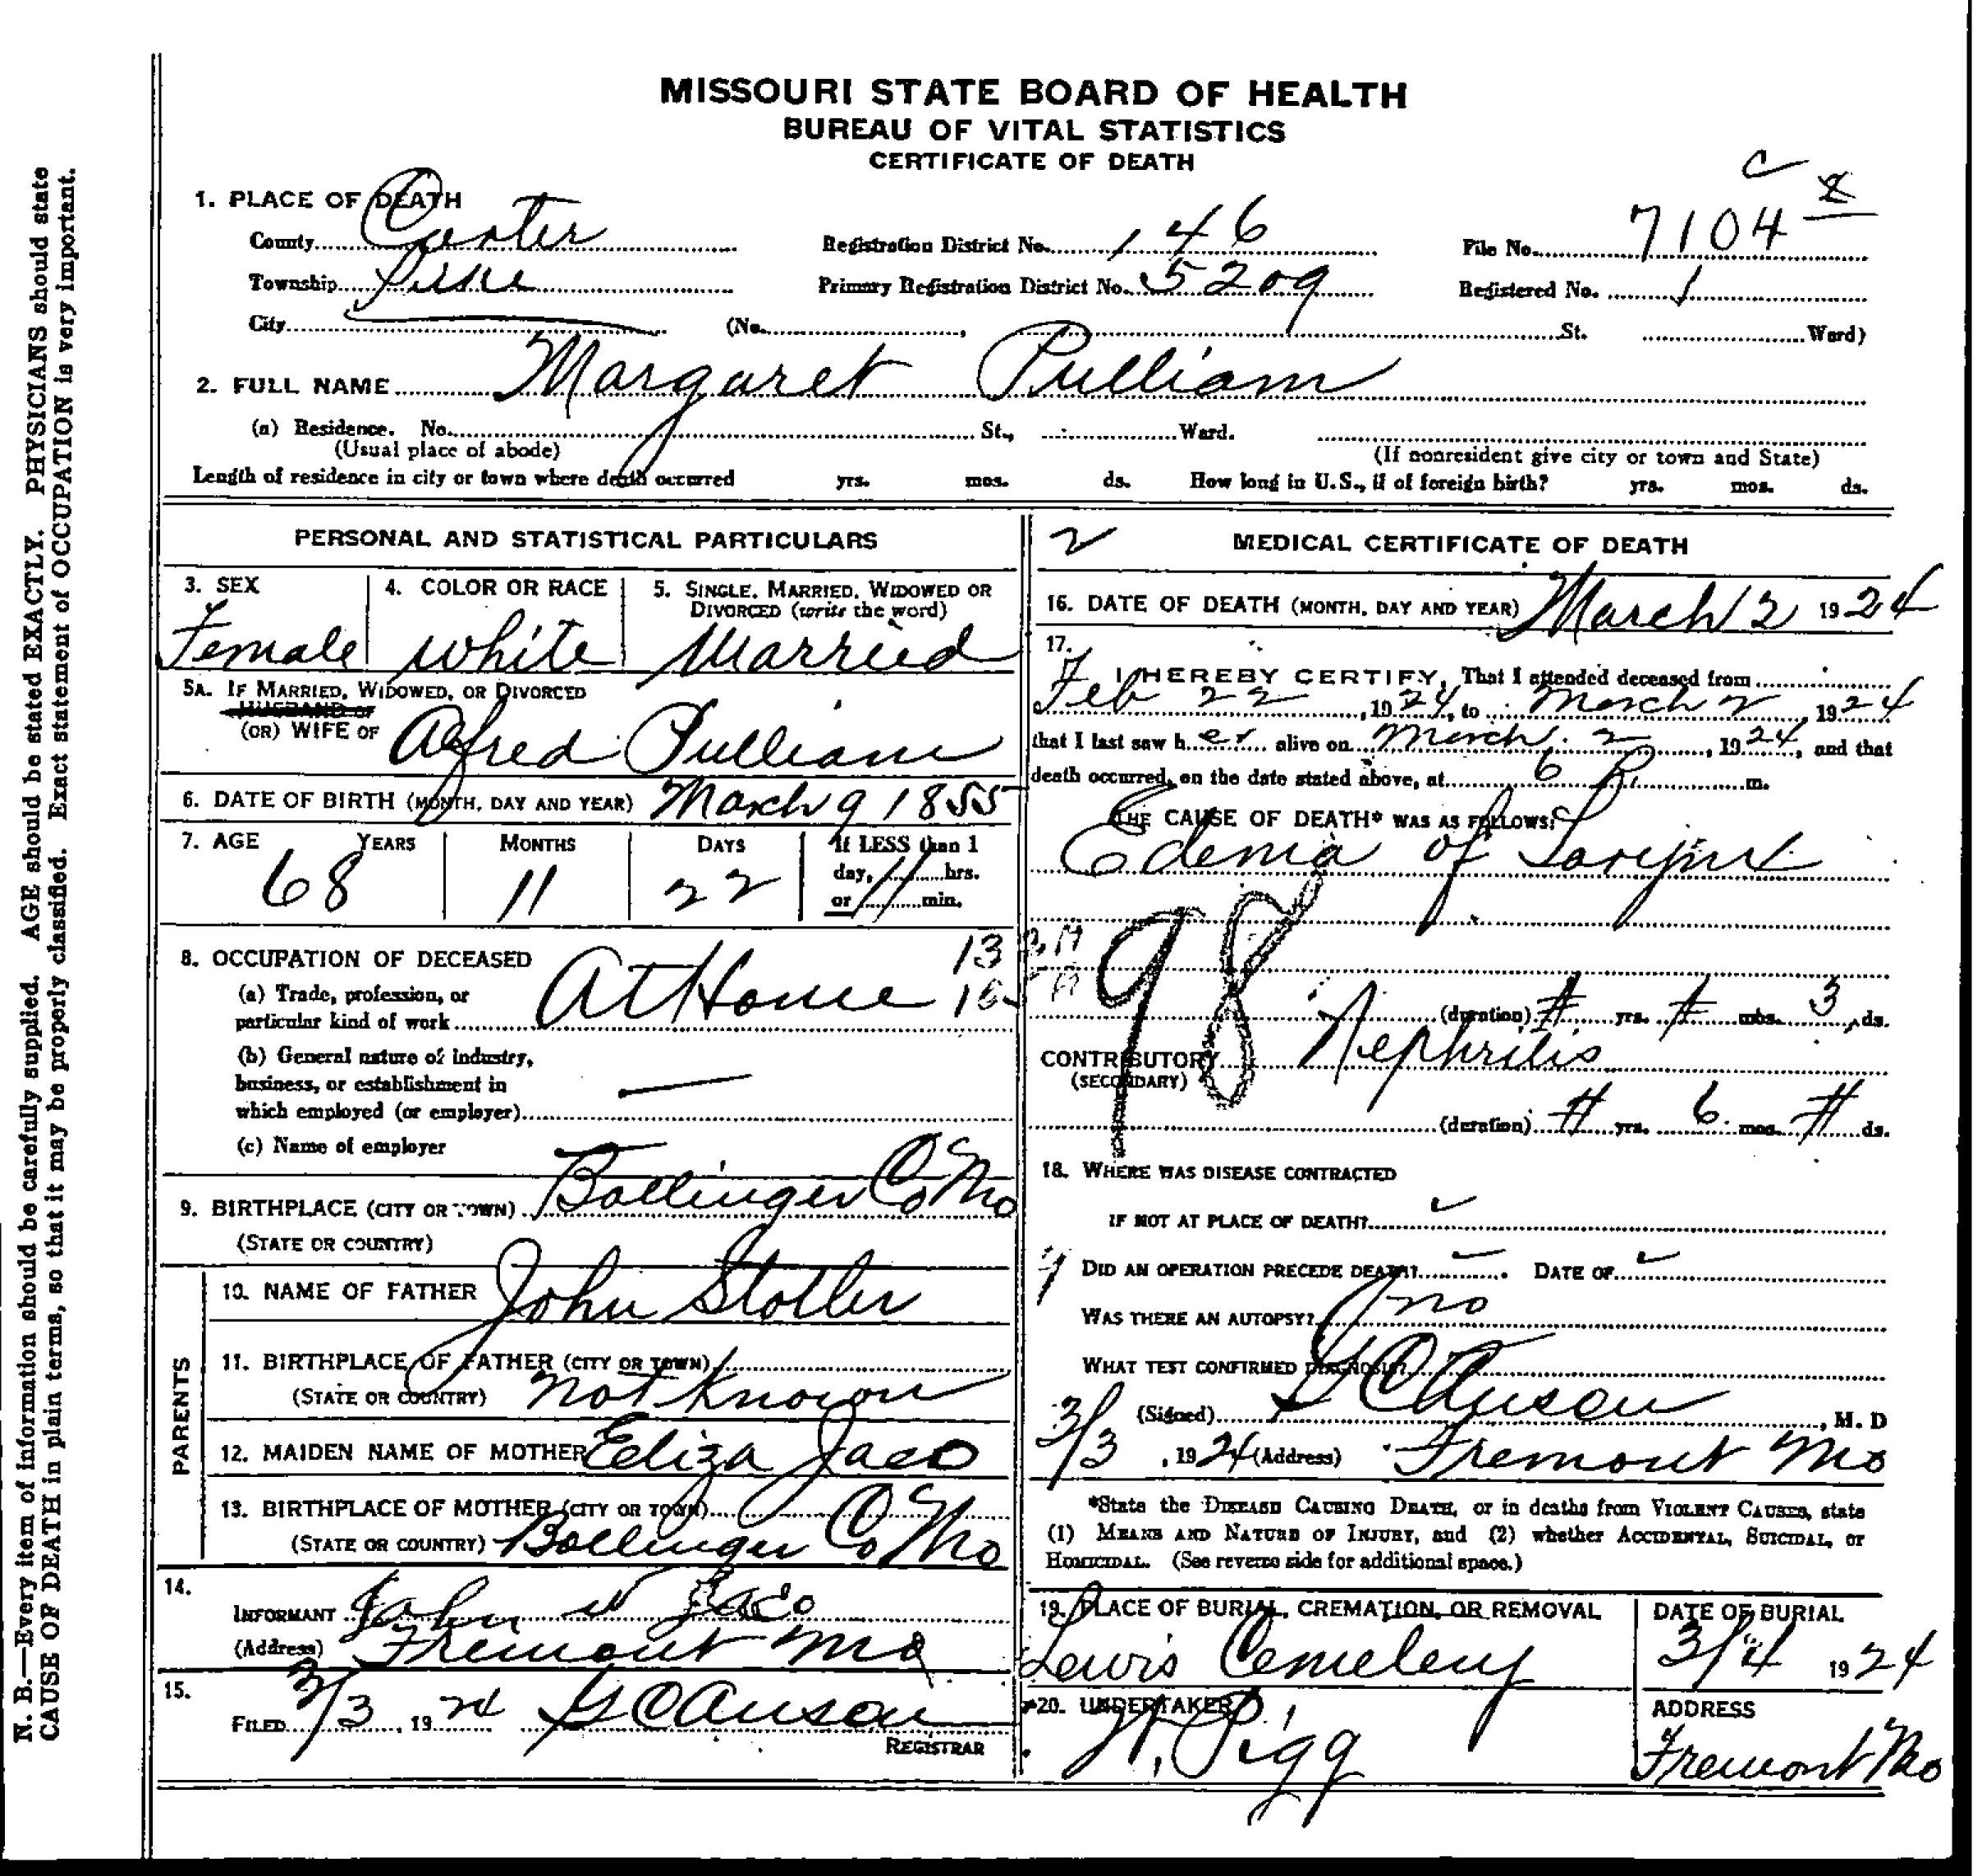 MISSOURI STATE BOARD OF HEALTH
BUREAU OF VITAL STATISTICS
CERTIFICATE OF DEATH
1. PLACE OF DEATH
County Carter Registration District No. 146 File No. 7104
Township Pike Primary Registration District No. 5209 Registered No. 1
City (No. , St. Ward)
2. FULL NAME Margaret Pulliam
(a) Residence. No. St., Ward.
(Usual place of abode) (If nonresident give city or town and State)
Length of residence in city or town where death occurred yrs. mos. ds. How long in U.S., if of foreign birth? yrs. mos. ds.
PERSONAL AND STATISTICAL PARTICULARS
3. SEX 4. COLOR OR RACE 5. SINGLE, MARRIED, WIDOWED OR
DIVORCED (write the word)
Female white Married
5A. IF MARRIED, WIDOWED, OR DIVORCED
HUSBAND OF
(OR) WIFE OF Alfred Pulliam
6. DATE OF BIRTH (MONTH, DAY AND YEAR) March 9 1855
7. AGE YEARS MONTHS DAYS If LESS than 1
day, hrs.
68 11 22 or min.
8. OCCUPATION OF DECEASED 13
(a) Trade, profession, or
particular kind of work At Home
(b) General nature of industry,
business, or establishment in
which employed (or employer)
(c) Name of employer
9. BIRTHPLACE (CITY OR TOWN) Bollinger Co Mo
(STATE OR COUNTRY)
PARENTS
10. NAME OF FATHER John Stotler
11. BIRTHPLACE OF FATHER (CITY OR TOWN)
(STATE OR COUNTRY) Not Known
12. MAIDEN NAME OF MOTHER Eliza Jaco
13. BIRTHPLACE OF MOTHER (CITY OR TOWN)
(STATE OR COUNTRY) Bollinger Co Mo
14.
INFORMANT John W Jaco
(Address) Fremont Mo
15.
FILED 3/3, 1924
REGISTRAR
2 MEDICAL CERTIFICATE OF DEATH
16. DATE OF DEATH (MONTH, DAY AND YEAR) March 2 1924
17.
I HEREBY CERTIFY, That I attended deceased from
Feb 22, 1924, to March 2, 1924
that I last saw her alive on March 2, 1924, and that
death occurred, on the date stated above, at 6 P. m.
THE CAUSE OF DEATH* WAS AS FOLLOWS:
Edema of
98
(duration) yrs. mos. 3 ds.
CONTRIBUTORY Nephritis
(SECONDARY)
(duration) yrs. 6 mos. ds.
18. WHERE WAS DISEASE CONTRACTED
IF NOT AT PLACE OF DEATH?
DID AN OPERATION PRECEDE DEATH? DATE OF
WAS THERE AN AUTOPSY? no
WHAT TEST CONFIRMED DIAGNOSIS?
(Signed) , M. D
3/3, 1924 (Address) Fremont Mo
*State the DISEASE CAUSING DEATH, or in deaths from VIOLENT CAUSES, state
(1) MEANS AND NATURE OF INJURY, and (2) whether ACCIDENTAL, SUICIDAL, or
HOMICIDAL. (See reverse side for additional space.)
19. PLACE OF BURIAL, CREMATION, OR REMOVAL DATE OF BURIAL
Lewis Cemetery 3/4 1924
20. UNDERTAKER ADDRESS
W. Pigg Fremont Mo
N. B.—Every item of information should be carefully supplied. AGE should be stated EXACTLY. PHYSICIANS should state
CAUSE OF DEATH in plain terms, so that it may be properly classified. Exact statement of OCCUPATION is very important.